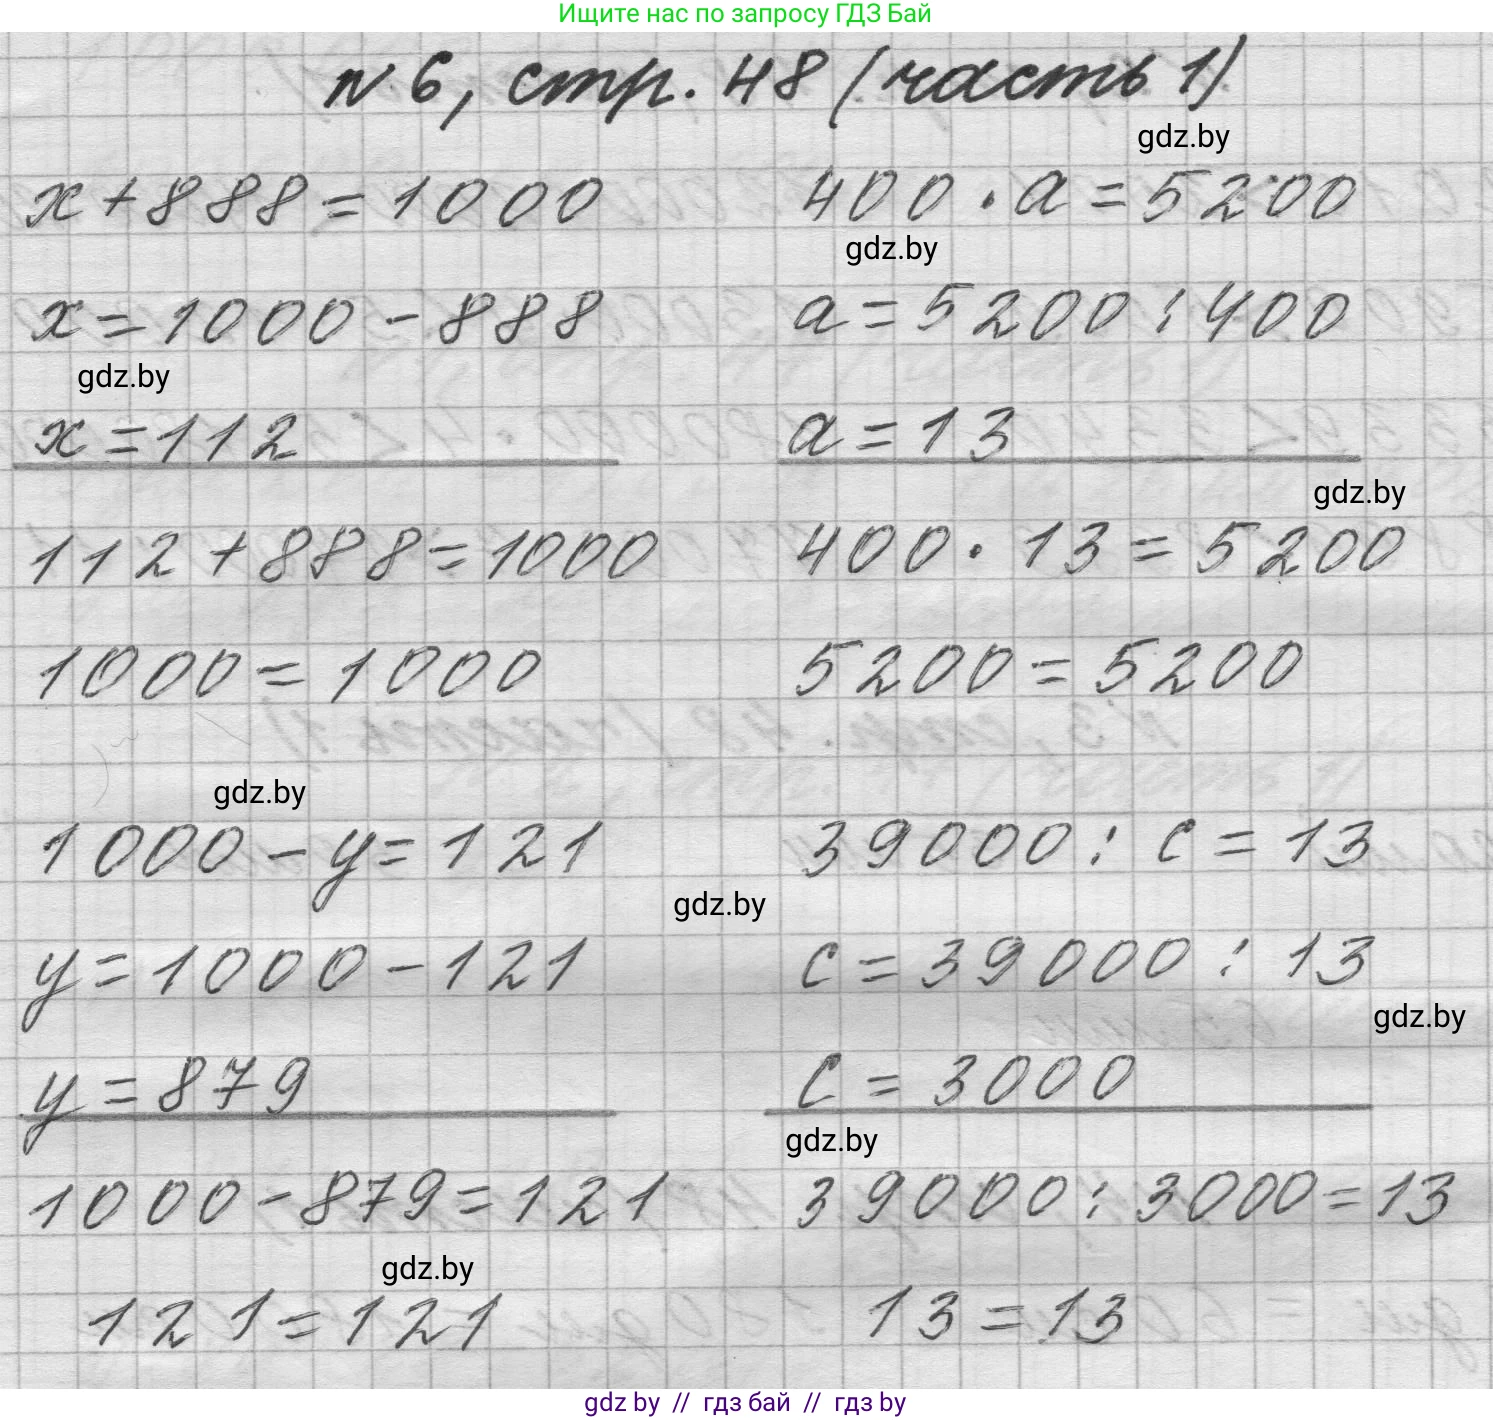 Ищите нас по запросу ГДЗ Бай
№ 6, стр. 48 (часть 1)
gdz.by
x + 888 = 1000
400 · a = 5200
gdz.by
x = 1000 - 888
a = 5200 : 400
gdz.by
x = 112
a = 13
gdz.by
112 + 888 = 1000
400 · 13 = 5200
1000 = 1000
5200 = 5200
gdz.by
1000 - y = 121
39000 : c = 13
gdz.by
y = 1000 - 121
c = 39000 : 13
gdz.by
y = 879
c = 3000
gdz.by
1000 - 879 = 121
39000 : 3000 = 13
gdz.by
121 = 121
13 = 13
gdz by // гдз бай // gdz by